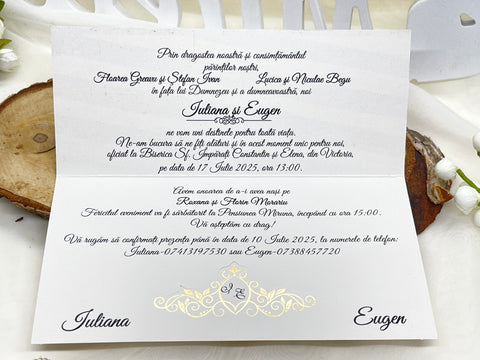 Prin dragostea noastră și consimțământul
părinților noștri,
Floarea Greavu și Ștefan Ivan Lucica și Niculae Begu
în fața lui Dumnezeu și a dumneavoastră, noi
Iuliana și Eugen
ne vom uni destinele pentru toată viața.
Ne-am bucura să ne fiți alături și în acest moment unic pentru noi,
oficiat la Biserica Sf. Împărați Constantin și Elena, din Victoria,
pe data de 17 Iulie 2025, ora 13:00.
Avem onoarea de a-i avea nași pe
Roxana și Florin Morariu
Fericitul eveniment va fi sărbătorit la Pensiunea Miruna, începând cu ora 15:00.
Vă așteptăm cu drag!
Vă rugăm să confirmați prezența până în data de 10 Iulie 2025, la numerele de telefon:
Iuliana-07413197530 sau Eugen-07388457720
I E
Iuliana Eugen